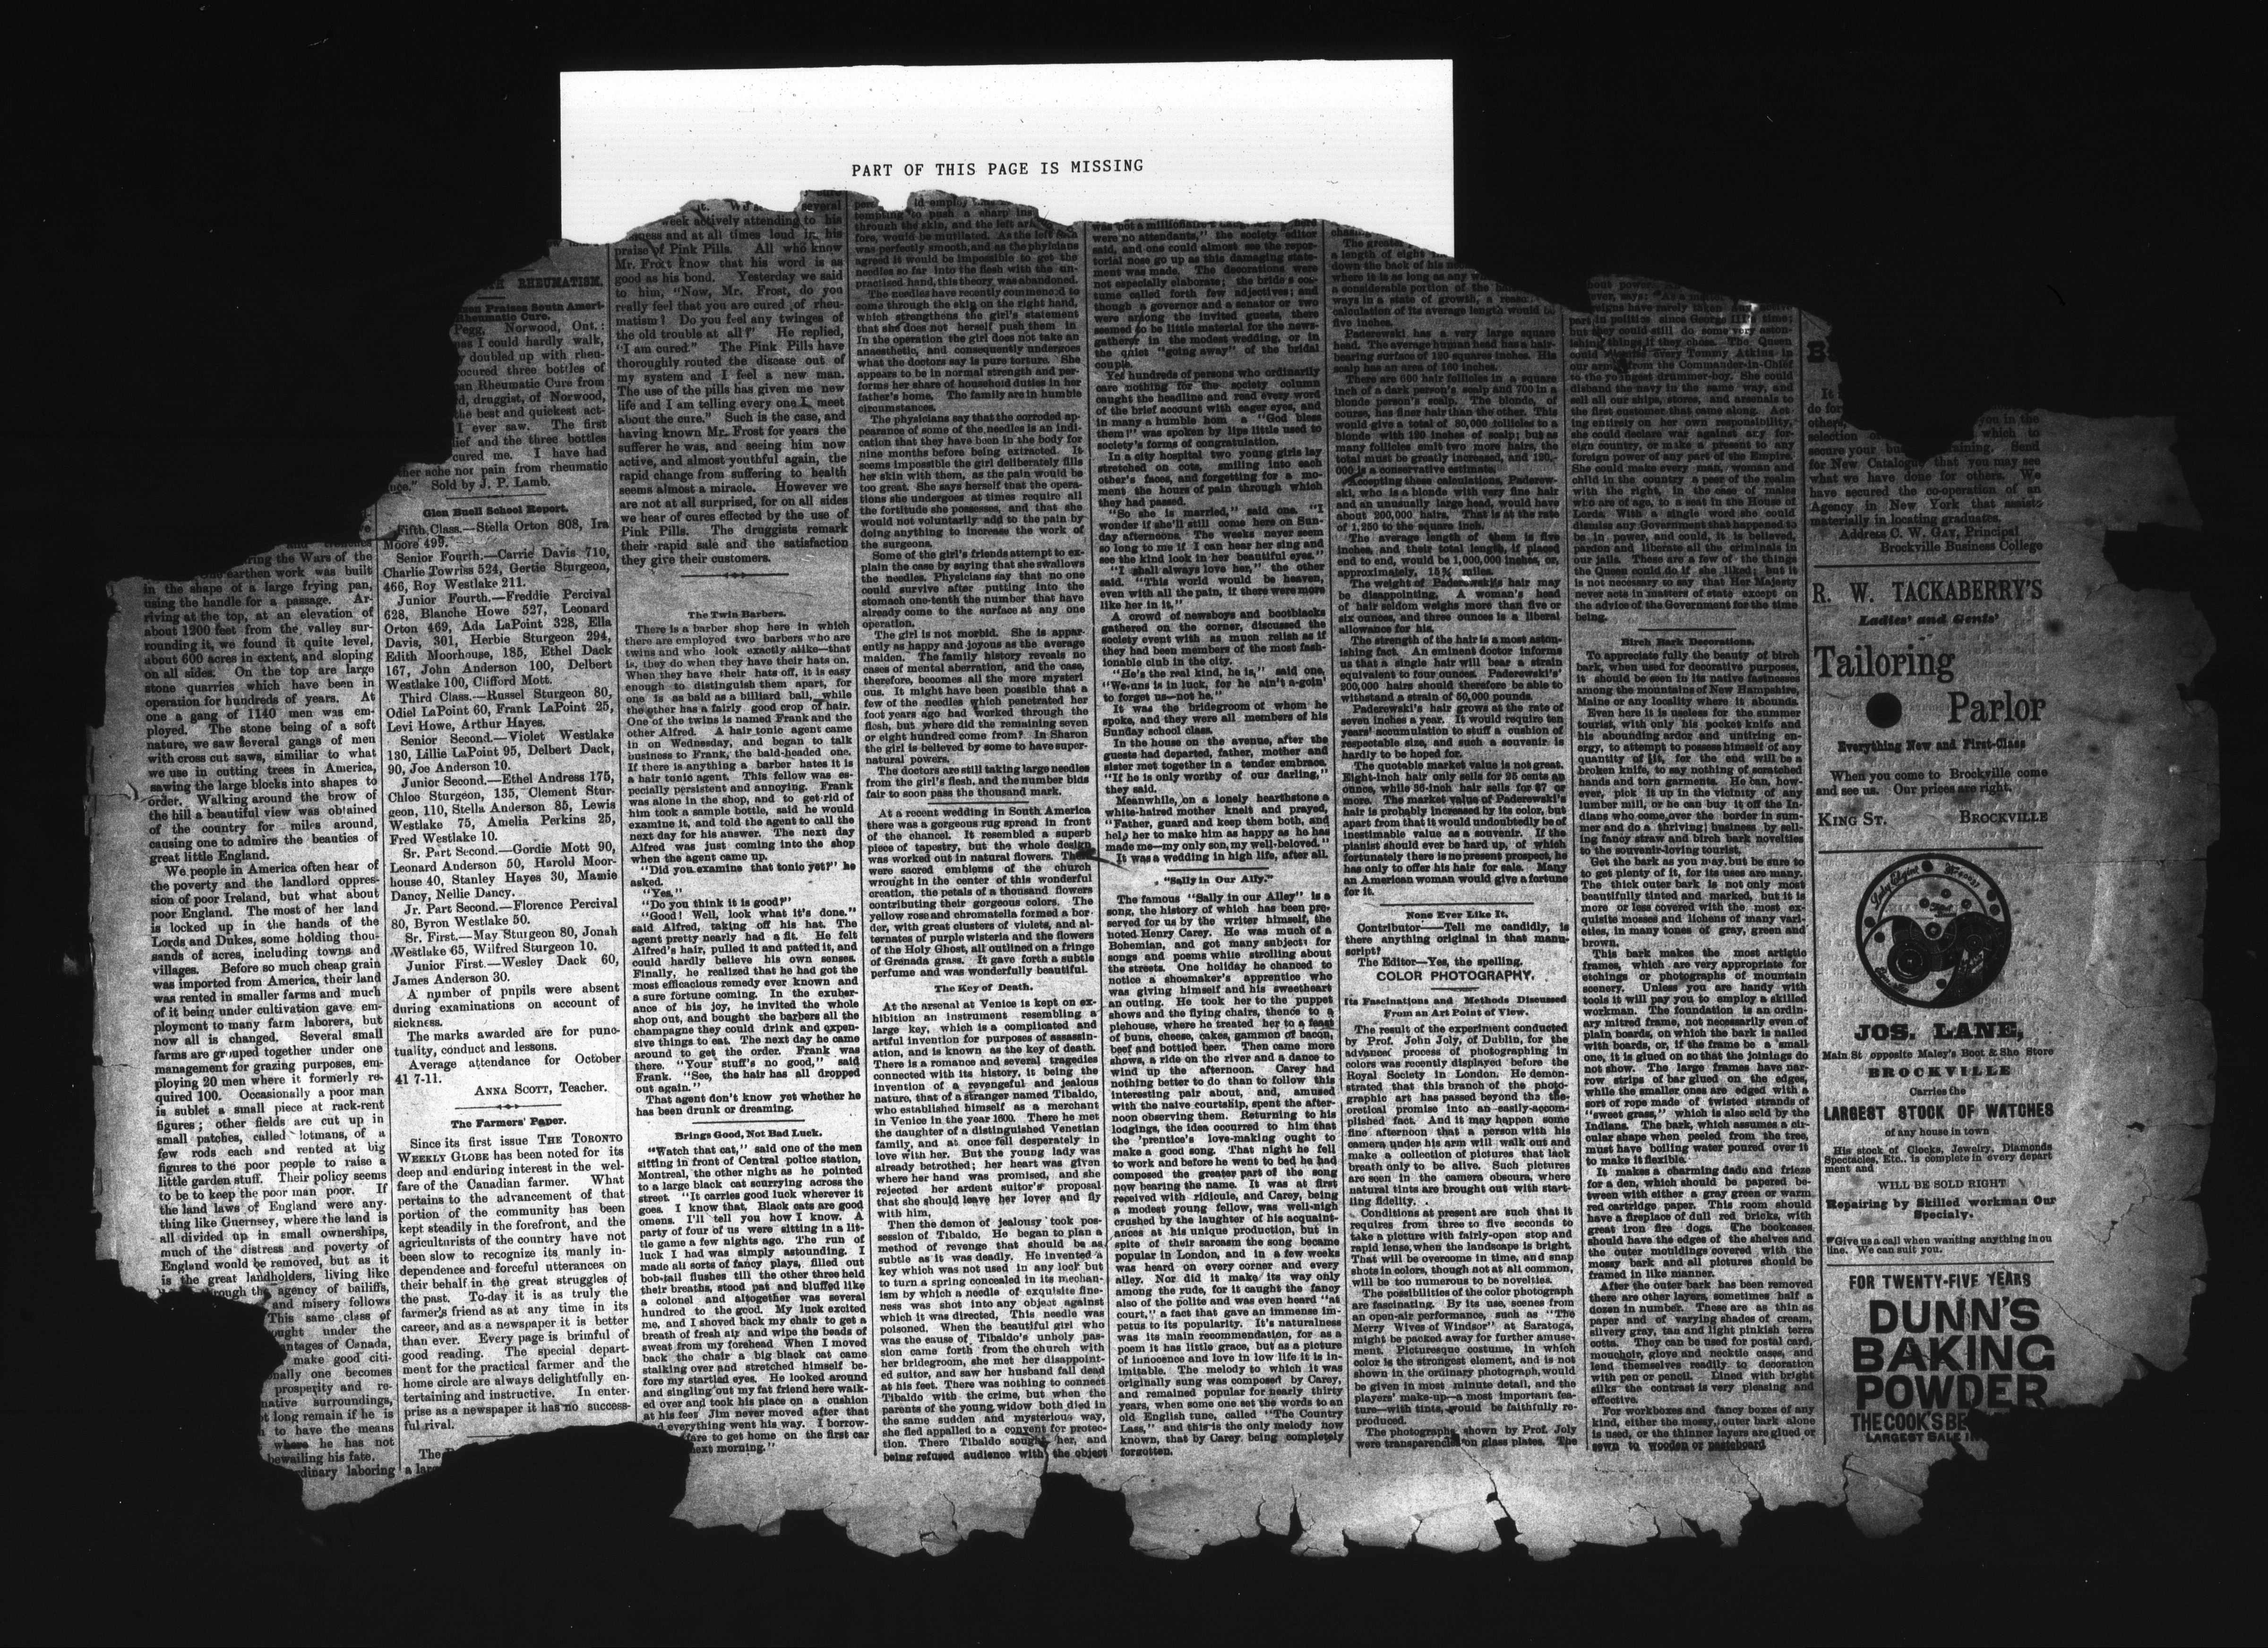 PART OF THIS PAGE IS MISSING
ring the Wars of the
earthen work was built
in the shape of a large frying pan,
using the handle for a passage. Ar-
riving at the top, at an elevation of
about 1200 feet from the valley sur-
rounding it, we found it quite level,
about 600 acres in extent, and sloping
on all sides. On the top are large
stone quarries which have been in
operation for hundreds of years. At
one a gang of 1140 men was em-
ployed. The stone being of a soft
nature, we saw several gangs of men
with cross cut saws, similiar to what
we use in cutting trees in America,
sawing the large blocks into shapes to
order. Walking around the brow of
the hill a beautiful view was obtained
of the country for miles around,
causing one to admire the beauties of
great little England.
We people in America often hear of
the poverty and the landlord oppres-
sion of poor Ireland, but what about
poor England. The most of her land
is locked up in the hands of the
Lords and Dukes, some holding thou-
sands of acres, including towns and
villages. Before so much cheap grain
was imported from America, their land
was rented in smaller farms and much
of it being under cultivation gave em-
ployment to many farm laborers, but
now all is changed. Several small
farms are grouped together under one
management for grazing purposes, em-
ploying 20 men where it formerly re-
quired 100. Occasionally a poor man
is sublet a small piece at rack-rent
figures; other fields are cut up in
small patches, called lotmans, of a
few rods each and rented at big
figures to the poor people to raise a
little garden stuff. Their policy seems
to be to keep the poor man poor. If
the land laws of England were any-
thing like Guernsey, where the land is
all divided up in small ownerships,
much of the distress and poverty of
England would be removed, but as it
is the great landholders, living like
through the agency of bailiffs,
and misery follows
This same class of
ought under the
ntages of Canada,
make good citi-
nally one becomes
prosperity and re-
native surroundings,
t long remain if he is
to have the means
where he has not
bewailing his fate.
rdinary laboring
RHEUMATISM.
zen Praises South Ameri-
Rheumatic Cure.
Pegg, Norwood, Ont.:
as I could hardly walk,
doubled up with rheu-
ocured three bottles of
an Rheumatic Cure from
d, druggist, of Norwood,
the best and quickest act-
I ever saw. The first
ief and the three bottles
cured me. I have had
ther ache nor pain from rheumatic
nce." Sold by J. P. Lamb.
Glen Buell School Report.
Fifth Class.—Stella Orton 808, Ira
Moore 499.
Senior Fourth.—Carrie Davis 710,
Charlie Towriss 524, Gertie Sturgeon,
466, Roy Westlake 211.
Junior Fourth.—Freddie Percival
628, Blanche Howe 527, Leonard
Orton 469, Ada LaPoint 328, Ella
Davis, 301, Herbie Sturgeon 294,
Edith Moorhouse, 185, Ethel Dack
167, John Anderson 100, Delbert
Westlake 100, Clifford Mott.
Third Class.—Russel Sturgeon 80,
Odiel LaPoint 60, Frank LaPoint 25,
Levi Howe, Arthur Hayes.
Senior Second.—Violet Westlake
130, Lillie LaPoint 95, Delbert Dack,
90, Joe Anderson 10.
Junior Second.—Ethel Andress 175,
Chloe Sturgeon, 135, Clement Stur-
geon, 110, Stella Anderson 85, Lewis
Westlake 75, Amelia Perkins 25,
Fred Westlake 10.
Sr. Part Second.—Gordie Mott 90,
Leonard Anderson 50, Harold Moor-
house 40, Stanley Hayes 30, Mamie
Dancy, Nellie Dancy.
Jr. Part Second.—Florence Percival
80, Byron Westlake 50.
Sr. First.—May Sturgeon 80, Jonah
Westlake 65, Wilfred Sturgeon 10.
Junior First.—Wesley Dack 60,
James Anderson 30.
A number of pupils were absent
during examinations on account of
sickness.
The marks awarded are for punc-
tuality, conduct and lessons.
Average attendance for October
41 7-11.
ANNA SCOTT, Teacher.
The Farmers' Paper.
Since its first issue THE TORONTO
WEEKLY GLOBE has been noted for its
deep and enduring interest in the wel-
fare of the Canadian farmer. What
pertains to the advancement of that
portion of the community has been
kept steadily in the forefront, and the
agriculturists of the country have not
been slow to recognize its manly in-
dependence and forceful utterances on
their behalf in the great struggles of
the past. To-day it is as truly the
farmer's friend as at any time in its
career, and as a newspaper it is better
than ever. Every page is brimful of
good reading. The special depart-
ment for the practical farmer and the
home circle are always delightfully en-
tertaining and instructive. In enter-
prise as a newspaper it has no success-
ful rival.
The
a lar
several
week actively attending to his
ness and at all times loud in his
praise of Pink Pills. All who know
Mr. Frost know that his word is as
good as his bond. Yesterday we said
to him, "Now, Mr. Frost, do you
really feel that you are cured of rheu-
matism? Do you feel any twinges of
the old trouble at all?" He replied,
"I am cured." The Pink Pills have
thoroughly routed the disease out of
my system and I feel a new man.
The use of the pills has given me new
life and I am telling every one I meet
about the cure." Such is the case, and
having known Mr. Frost for years the
sufferer he was, and seeing him now
active, and almost youthful again, the
rapid change from suffering to health
seems almost a miracle. However we
are not at all surprised, for on all sides
we hear of cures effected by the use of
Pink Pills. The druggists remark
their rapid sale and the satisfaction
they give their customers.
The Twin Barbers.
There is a barber shop here in which
there are employed two barbers who are
twins and who look exactly alike—that
is, they do when they have their hats on.
When they have their hats off, it is easy
enough to distinguish them apart, for
one is as bald as a billiard ball, while
the other has a fairly good crop of hair.
One of the twins is named Frank and the
other Alfred. A hair tonic agent came
in on Wednesday, and began to talk
business to Frank, the bald-headed one.
If there is anything a barber hates it is
a hair tonic agent. This fellow was es-
pecially persistent and annoying. Frank
was alone in the shop, and to get rid of
him took a sample bottle, said he would
examine it, and told the agent to call the
next day for his answer. The next day
Alfred was just coming into the shop
when the agent came up.
"Did you examine that tonic yet?" he
asked.
"Yes."
"Do you think it is good?"
"Good! Well, look what it's done."
said Alfred, taking off his hat. The
agent pretty nearly had a fit. He felt
Alfred's hair, pulled it and patted it, and
could hardly believe his own senses.
Finally, he realized that he had got the
most efficacious remedy ever known and
a sure fortune coming. In the exuber-
ance of his joy, he invited the whole
shop out, and bought the barbers all the
champagne they could drink and expen-
sive things to eat. The next day he came
around to get the order. Frank was
there. "Your stuff's no good," said
Frank. "See, the hair has all dropped
out again."
That agent don't know yet whether he
has been drunk or dreaming.
Brings Good, Not Bad Luck.
"Watch that cat," said one of the men
sitting in front of Central police station,
Montreal, the other night as he pointed
to a large black cat scurrying across the
street. "It carries good luck wherever it
goes. I know that. Black cats are good
omens. I'll tell you how I know. A
party of four of us were sitting in a lit-
tle game a few nights ago. The run of
luck I had was simply astounding. I
made all sorts of fancy plays, filled out
bob-tail flushes till the other three held
their breaths, stood pat and bluffed like
a colonel and altogether was several
hundred to the good. My luck excited
me, and I shoved back my chair to get a
breath of fresh air and wipe the beads of
sweat from my forehead. When I moved
back the chair a big black cat came
stalking over and stretched himself be-
fore my startled eyes. He looked around
and singling out my fat friend here walk-
ed over and took his place on a cushion
at his feet. Jim never moved after that
and everything went his way. I borrow-
fare to get home on the first car
next morning."
tempting to push a sharp ins
through the skin, and the left ar
fore, would be mutilated. As the left
was perfectly smooth, and as the phyicians
agreed it would be impossible to get the
needles so far into the flesh with the un-
practised hand, this theory was abandoned.
The needles have recently commenced to
come through the skin on the right hand,
which strengthens the girl's statement
that she does not herself push them in
In the operation the girl does not take an
anaesthetic, and consequently undergoes
what the doctors say is pure torture. She
appears to be in normal strength and per-
forms her share of household duties in her
father's home. The family are in humble
circumstances.
The physicians say that the corroded ap-
pearance of some of the needles is an indi-
cation that they have been in the body for
nine months before being extracted. It
seems impossible the girl deliberately fills
her skin with them, as the pain would be
too great. She says herself that the opera-
tions she undergoes at times require all
the fortitude she possesses, and that she
would not voluntarily add to the pain by
doing anything to increase the work of
the surgeons.
Some of the girl's friends attempt to ex-
plain the case by saying that she swallows
the needles. Physicians say that no one
could survive after putting into the
stomach one-tenth the number that have
already come to the surface at any one
operation.
The girl is not morbid. She is appar-
ently as happy and joyous as the average
maiden. The family history reveals no
cases of mental aberration, and the case,
therefore, becomes all the more mysteri
ous. It might have been possible that a
few of the needles which penetrated her
foot years ago had worked through the
flesh, but where did the remaining seven
or eight hundred come from? In Sharon
the girl is believed by some to have super-
natural powers.
The doctors are still taking large needles
from the girl's flesh, and the number bids
fair to soon pass the thousand mark.
At a recent wedding in South America
there was a gorgeous rug spread in front
of the chancel. It resembled a superb
piece of tapestry, but the whole design
was worked out in natural flowers. There
were sacred emblems of the church
wrought in the center of this wonderful
creation, the petals of a thousand flowers
contributing their gorgeous colors. The
yellow rose and chromatella formed a bor-
der, with great clusters of violets, and al-
ternates of purple wisteria and the flowers
of the Holy Ghost, all outlined on a fringe
of Grenada grass. It gave forth a subtle
perfume and was wonderfully beautiful.
The Key of Death.
At the arsenal at Venice is kept on ex-
hibition an instrument resembling a
large key, which is a complicated and
artful invention for purposes of assassin-
ation, and is known as the key of death.
There is a romance and several tragedies
connected with its history, it being the
invention of a revengeful and jealous
nature, that of a stranger named Tibaldo,
who established himself as a merchant
in Venice in the year 1600. There he met
the daughter of a distinguished Venetian
family, and at once fell desperately in
love with her. But the young lady was
already betrothed; her heart was given
where her hand was promised, and she
rejected her ardent suitor's proposal
that she should leave her lover and fly
with him,
Then the demon of jealousy took pos-
session of Tibaldo. He began to plan a
method of revenge that should be as
subtle as it was deadly. He invented a
key which was not used in any lock but
to turn a spring concealed in its mechan-
ism by which a needle of exquisite fine-
ness was shot into any object against
which it was directed, This needle was
poisoned. When the beautiful girl who
was the cause of Tibaldo's unholy pas-
sion came forth from the church with
her bridegroom, she met her disappoint-
ed suitor, and saw her husband fall dead
at his feet. There was nothing to connect
Tibaldo with the crime, but when the
parents of the young widow both died in
the same sudden and mysterious way,
she fled appalled to a convent for protec-
tion. There Tibaldo sought her, and
being refused audience with the object
were no attendants," the society editor
said, and one could almost see the repor-
torial nose go up as this damaging state-
ment was made. The decorations were
not especially elaborate; the bride's cos-
tume called forth few adjectives; and
though a governor and a senator or two
were among the invited guests, there
seemed to be little material for the news-
gatherer in the modest wedding, or in
the quiet "going away" of the bridal
couple.
Yet hundreds of persons who ordinarily
care nothing for the society column
caught the headline and read every word
of the brief account with eager eyes, and
in many a humble hom a "God bless
them!" was spoken by lips little used to
society's forms of congratulation.
In a city hospital two young girls lay
stretched on cots, smiling into each
other's faces, and forgetting for a mo-
ment the hours of pain through which
they had passed.
"So she is married," said one. "I
wonder if she'll still come here on Sun-
day afternoons. The weeks never seem
so long to me if I can hear her sing and
see the kind look in her beautiful eyes."
"I shall always love her," the other
said. "This world would be heaven,
even with all the pain, if there were more
like her in it,"
A crowd of newsboys and bootblacks
gathered on the corner, discussed the
society event with as much relish as if
they had been members of the most fash-
ionable club in the city.
"He's the real kind, he is," said one.
"We-uns is in luck, for he ain't a-goin'
to forget us—not he."
It was the bridegroom of whom he
spoke, and they were all members of his
Sunday school class.
In the house on the avenue, after the
guests had departed, father, mother and
sister met together in a tender embrace.
"If he is only worthy of our darling,"
they said.
Meanwhile, on a lonely hearthstone a
white-haired mother knelt and prayed,
"Father, guard and keep them both, and
help her to make him as happy as he has
made me—my only son, my well-beloved."
It was a wedding in high life, after all.
"Sally in Our Ally."
The famous "Sally in our Alley" is a
song, the history of which has been pre-
served for us by the writer himself, the
noted Henry Carey. He was much of a
Bohemian, and got many subjects for
songs and poems while strolling about
the streets. One holiday he chanced to
notice a shoemaker's apprentice who
was giving himself and his sweetheart
an outing. He took her to the puppet
shows and the flying chairs, thence to a
piehouse, where he treated her to a feast
of buns, cheese, cakes, gammon of bacon,
beef and bottled beer. Then came more
shows, a ride on the river and a dance to
wind up the afternoon. Carey had
nothing better to do than to follow this
interesting pair about, and, amused
with the naive courtship, spent the after-
noon observing them. Returning to his
lodgings, the idea occurred to him that
the 'prentice's love-making ought to
make a good song. That night he fell
to work and before he went to bed he had
composed the greater part of the song
now bearing the name. It was at first
received with ridicule, and Carey, being
a modest young fellow, was well-nigh
crushed by the laughter of his acquaint-
ances at his unique production, but in
spite of their sarcasm the song became
popular in London, and in a few weeks
was heard on every corner and every
alley. Nor did it make its way only
among the rude, for it caught the fancy
also of the polite and was even heard "at
court," a fact that gave an immense im-
petus to its popularity. It's naturalness
was its main recommendation, for as a
poem it has little grace, but as a picture
of innocence and love in low life it is in-
imitable. The melody to which it was
originally sung was composed by Carey,
and remained popular for nearly thirty
years, when some one set the words to an
old English tune, called "The Country
Lass," and this is the only melody now
known, that by Carey being completely
forgotten.
The greater
a length of eight
down the back of his
where it is as long as any
a considerable portion of the
ways in a state of growth, a reaso
calculation of its average length would be
five inches.
Paderewski has a very large square
head. The average human head has a hair-
bearing surface of 120 squares inches. His
scalp has an area of 160 inches.
There are 600 hair follicles in a square
inch of a dark person's scalp and 700 in a
blonde person's scalp. The blonde, of
course, has finer hair than the other. This
would give a total of 80,000 follicles to a
blonde with 120 inches of scalp; but as
many follicles emit two more hairs, the
total must be greatly increased, and 120,-
000 is a conservative estimate.
Accepting these calculations, Paderew-
ski, who is a blonde with very fine hair
and an unusually large head, would have
about 200,000 hairs. That is at the rate
of 1,250 to the square inch.
The average length of them is five
inches, and their total length, if placed
end to end, would be 1,000,000 inches, or,
approximately, 15¾ miles.
The weight of Paderewski's hair may
be disappointing. A woman's head
of hair seldom weighs more than five or
six ounces, and three ounces is a liberal
allowance for his.
The strength of the hair is a most aston-
ishing fact. An eminent doctor informs
us that a single hair will bear a strain
equivalent to four ounces. Paderewskis'
200,000 hairs should therefore be able to
withstand a strain of 50,000 pounds.
Paderewski's hair grows at the rate of
seven inches a year. It would require ten
years' accumulation to stuff a cushion of
respectable size, and such a souvenir is
hardly to be hoped for.
The quotable market value is not great.
Eight-inch hair only sells for 25 cents an
ounce, while 36-inch hair sells for $7 or
more. The market value of Paderewski's
hair is probably increased by its color, but
apart from that it would undoubtedly be of
inestimable value as a souvenir. If the
pianist should ever be hard up, of which
fortunately there is no present prospect, he
has only to offer his hair for sale. Many
an American woman would give a fortune
for it.
None Ever Like It.
Contributor——Tell me candidly, is
there anything original in that manu-
script?
The Editor—Yes, the spelling.
COLOR PHOTOGRAPHY.
Its Fascinations and Methods Discussed
From an Art Point of View.
The result of the experiment conducted
by Prof. John Joly, of Dublin, for the
advanced process of photographing in
colors was recently displayed before the
Royal Society in London. He demon-
strated that this branch of the photo-
graphic art has passed beyond the the-
oretical promise into an easily-accom-
plished fact. And it may happen some
fine afternoon that a person with his
camera under his arm will walk out and
make a collection of pictures that lack
breath only to be alive. Such pictures
are seen in the camera obscura, where
natural tints are brought out with start-
ling fidelity.
Conditions at present are such that it
requires from three to five seconds to
take a picture with fairly-open stop and
rapid lense, when the landscape is bright.
That will be overcome in time, and snap
shots in colors, though not at all common,
will be too numerous to be novelties.
The possibilities of the color photograph
are fascinating. By its use, scenes from
an open-air performance, such as "The
Merry Wives of Windsor" at Saratoga,
might be packed away for further amuse-
ment. Picturesque costume, in which
color is the strongest element, and is not
shown in the ordinary photograph, would
be given in most minute detail, and the
players' make-up—a most important fea-
ture—with tints, would be faithfully re-
produced.
The photographs shown by Prof. Joly
were transparencies on glass plates. The
ver, says: "As a
reigns have rarely taken
part in politics since George III's time;
but they could still do some very aston-
ishing things if they chose. The Queen
could every Tommy Atkins in
our army from the Commander-in-Chief
to the youngest drummer-boy. She could
disband the navy in the same way, and
sell all our ships, stores, and arsenals to
the first customer that came along. Act
ing entirely on her own responsibility,
she could declare war against any for-
eign country, or make a present to any
foreign power of any part of the Empire.
She could make every man, woman and
child in the country a peer of the realm
with the right, in the case of males
who are of age, to a seat in the House of
Lords. With a single word she could
dismiss any Government that happened to
be in power, and could, it is believed,
pardon and liberate all the criminals in
our jails. These are a few of the things
the Queen could do if she liked; but it
is not necessary to say that Her Majesty
never acts in matters of state except on
the advice of the Government for the time
being.
Birch Bark Decorations.
To appreciate fully the beauty of birch
bark, when used for decorative purposes,
it should be seen in its native fastnesses
among the mountains of New Hampshire,
Maine or any locality where it abounds.
Even here it is useless for the summer
tourist, with only his pocket knife and
his abounding ardor and untiring en-
ergy, to attempt to possess himself of any
quantity of it, for the end will be a
broken knife, to say nothing of scratched
hands and torn garments. He can, how-
ever, pick it up in the vicinity of any
lumber mill, or he can buy it off the In-
dians who come over the border in sum-
mer and do a thriving business by sell-
ing fancy straw and birch bark novelties
to the souvenir-loving tourist.
Get the bark as you may, but be sure to
get plenty of it, for its uses are many.
The thick outer bark is not only most
beautifully tinted and marked, but it is
more or less covered with the most ex-
quisite mosses and lichens of many vari-
eties, in many tones of gray, green and
brown.
This bark makes the most artistic
frames, which are very appropriate for
etchings or photographs of mountain
scenery. Unless you are handy with
tools it will pay you to employ a skilled
workman. The foundation is an ordin-
ary mitred frame, not necessarily even of
plain boards, on which the bark is nailed
with boards, or, if the frame be a small
one, it is glued on so that the joinings do
not show. The large frames have nar-
row strips of bar glued on the edges,
while the smaller ones are edged with a
sort of rope made of twisted strands of
"sweet grass," which is also sold by the
Indians. The bark, which assumes a cir-
cular shape when peeled from the tree,
must have boiling water poured over it
to make it flexible.
It makes a charming dado and frieze
for a den, which should be papered be-
tween with either a gray green or warm
red cartridge paper. This room should
have a fireplace of dull red bricks, with
great iron fire dogs. The bookcases
should have the edges of the shelves and
the outer mouldings covered with the
mossy bark and all pictures should be
framed in like manner.
After the outer bark has been removed
there are other layers, sometimes half a
dozen in number. These are as thin as
paper and of varying shades of cream,
silvery gray, tan and light pinkish terra
cotta. They can be used for postal card,
mouchoir, glove and necktie cases, and
lend themselves readily to decoration
with pen or pencil. Lined with bright
silks the contrast is very pleasing and
effective.
For workboxes and fancy boxes of any
kind, either the mossy outer bark alone
is used, or the thinner layers are glued or
sewn to wooden or pasteboard
It
do for you in the
others, which to
selection of
secure your bus training. Send
for New Catalogue that you may see
what we have done for others. We
have secured the co-operation of an
Agency in New York that assists
materially in locating graduates.
Address C. W. GAY, Principal
Brockville Business College
R. W. TACKABERRY'S
Ladies' and Gents'
Tailoring
Parlor
Everything New and First-Class
When you come to Brockville come
and see us. Our prices are right.
KING ST. BROCKVILLE
JOS. LANE,
Main St opposite Maley's Boot & Shoe Store
BROCKVILLE
Carries the
LARGEST STOCK OF WATCHES
of any house in town
His stock of Clocks, Jewelry, Diamonds
Spectacles, Etc., is complete in every depart
ment and
WILL BE SOLD RIGHT
Repairing by Skilled workman Our
Specialy.
Give us a call when wanting anything in ou
line. We can suit you.
FOR TWENTY-FIVE YEARS
DUNN'S
BAKING
POWDER
THE COOK'S BE
LARGEST SALE IN